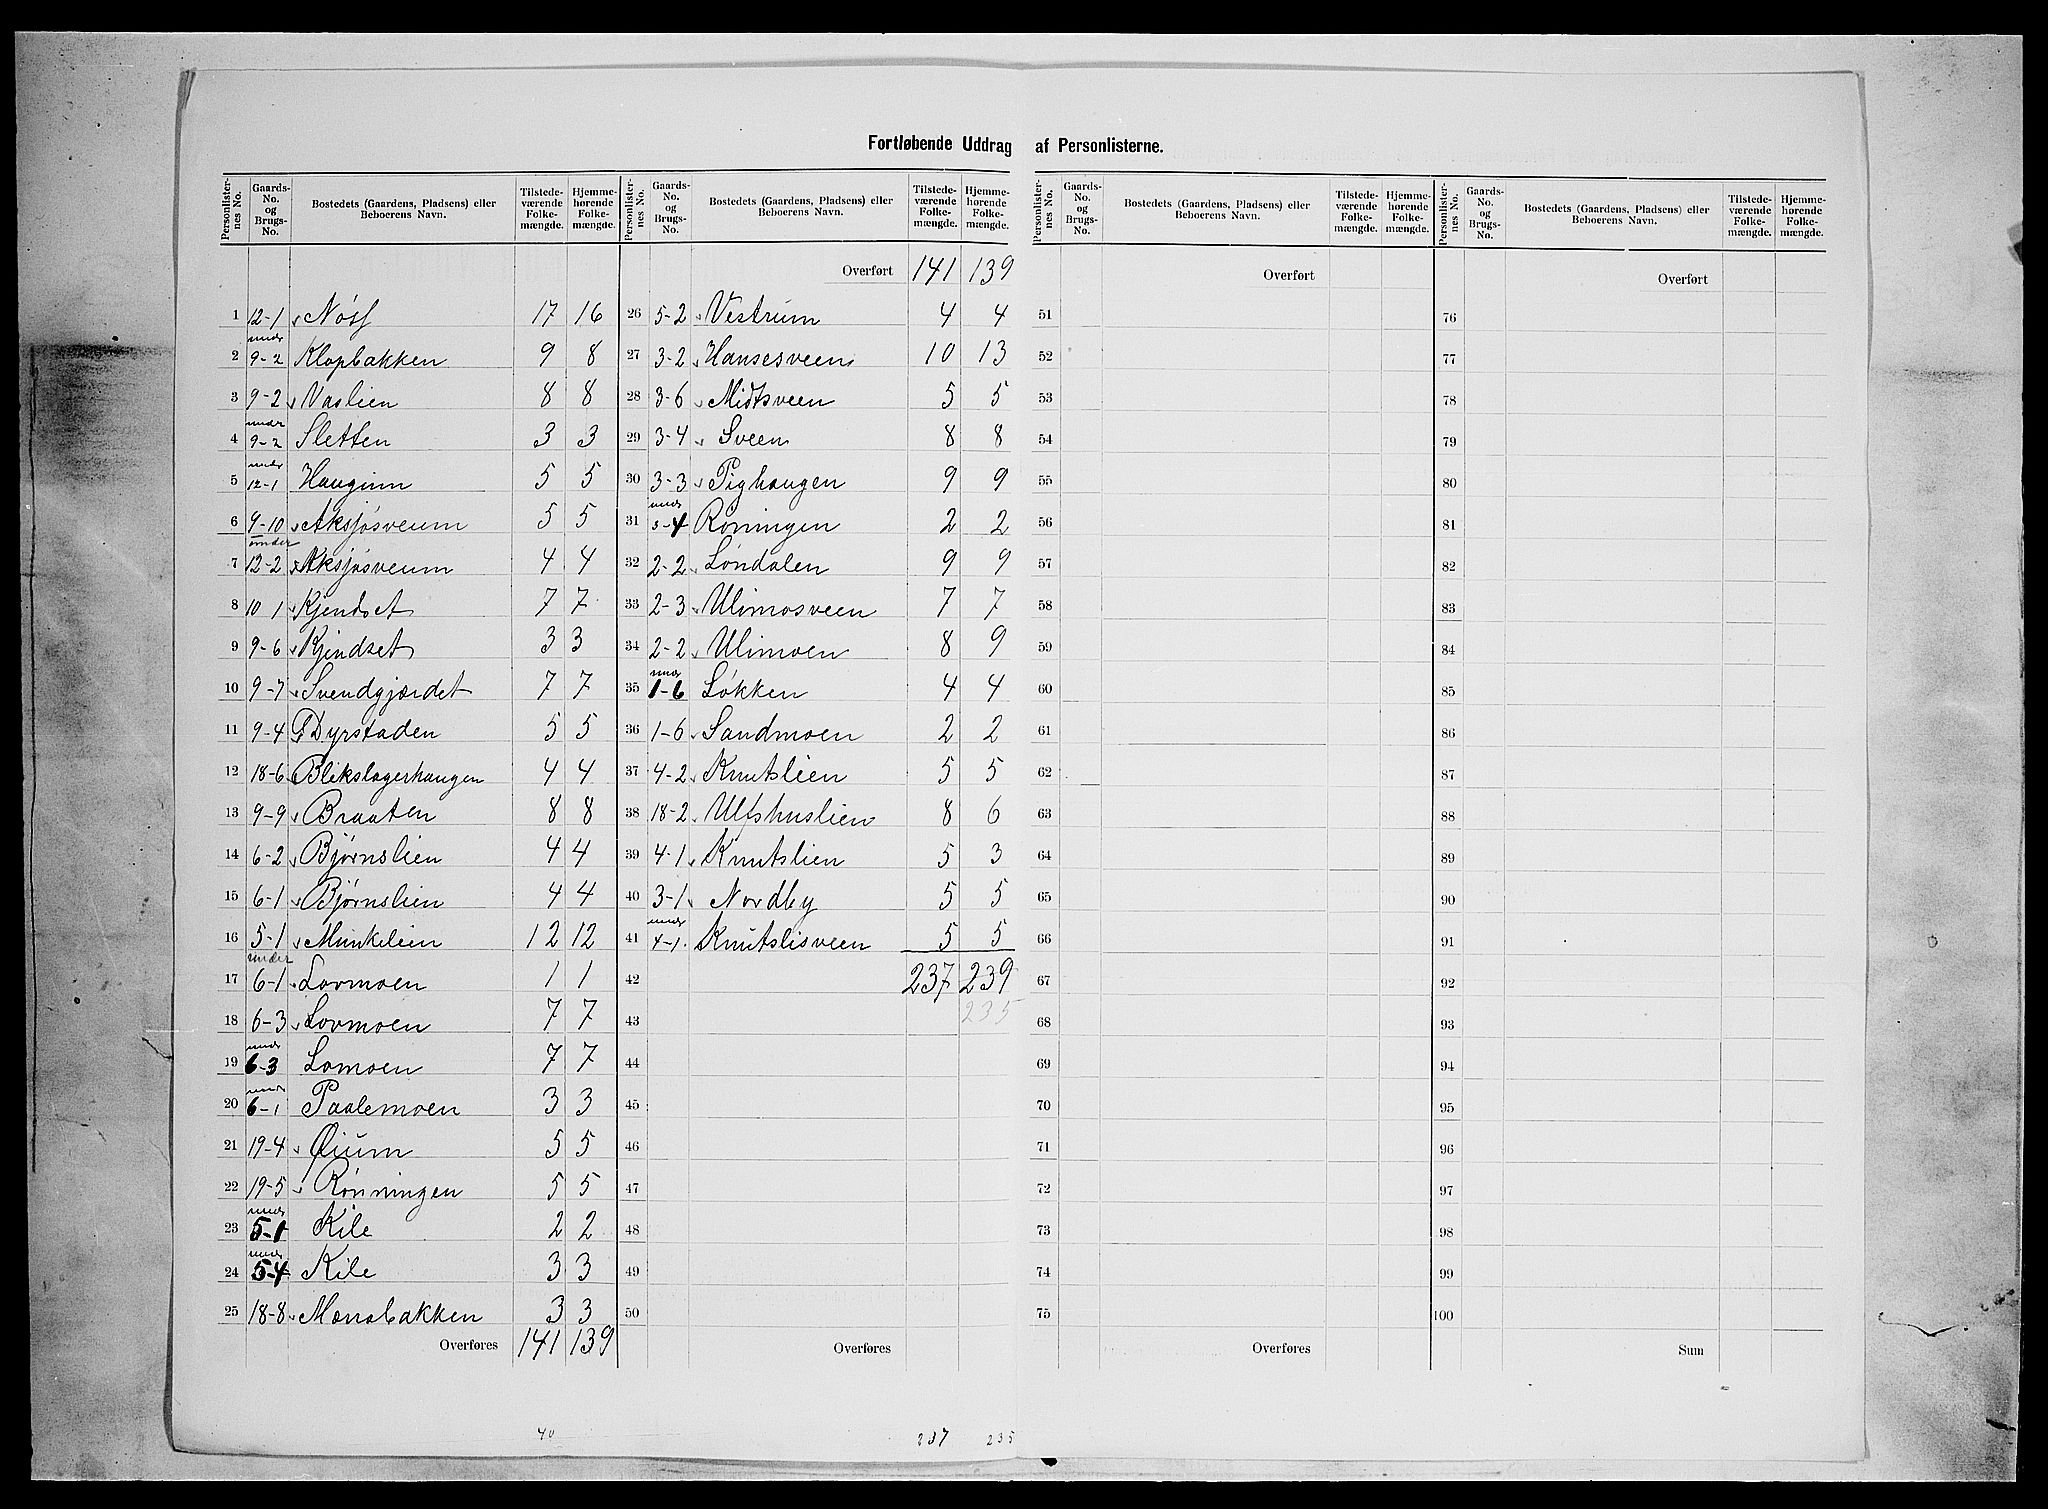 Fortløbende Uddrag af Personlisterne.
Personlisternes No. | Gaards-No. og Brugs-No. | Bostedets (Gaardens, Pladsens) eller Beboerens Navn. | Tilstedeværende Folkemængde. | Hjemmehørende Folkemængde.
1 12-1 Nøss 17 16
2 under 9-2 Klopbakken 9 8
3 9-2 Vaslien 8 8
4 under 9-2 Sletten 3 3
5 under 12-1 Haugum 5 5
6 9-10 Aksjøsveum 5 5
7 under 12-2 Aksjøsveum 4 4
8 10 1 Kjendset 7 7
9 9-6 Kjendset 3 3
10 9-7 Svendgjærdet 7 7
11 9-4 Dyrstaden 5 5
12 18-6 Blikslagerhaugen 4 4
13 9-9 Braaten 8 8
14 6-2 Bjørnslien 4 4
15 6-1 Bjørnslien 4 4
16 5-1 Munkelien 12 12
17 under 6-1 Lovmoen 1 1
18 6-3 Lovmoen 7 7
19 under 6-3 Lomoen 7 7
20 under 6-1 Paalemoen 3 3
21 19-4 Øium 5 5
22 19-5 Rønningen 5 5
23 under 5-1 Kile 2 2
24 under 5-4 Kile 3 3
25 18-8 Mænabakken 3 3
Overføres 141 139
Personlisternes No. | Gaards-No. og Brugs-No. | Bostedets (Gaardens, Pladsens) eller Beboerens Navn. | Tilstedeværende Folkemængde. | Hjemmehørende Folkemængde.
Overført 141 139
26 5-2 Vestrum 4 4
27 3-2 Hansesveen 10 13
28 3-6 Midtsveen 5 5
29 3-4 Sveen 8 8
30 3-3 Pighaugen 9 9
31 under 3-4 Roningen 2 2
32 2-2 Løndalen 9 9
33 2-3 Ulimosveen 7 7
34 2-2 Ulimoen 8 9
35 under 1-6 Løkken 4 4
36 1-6 Sandmoen 2 2
37 4-2 Knutslien 5 5
38 18-2 Ulfshuslien 8 6
39 4-1 Knutslien 5 3
40 3-1 Nordby 5 5
41 under 4-1 Knutslisveen 5 5
42 237 239
43 235
44
45
46
47
48
49
50
Overføres
40 237 235
Personlisternes No. | Gaards-No. og Brugs-No. | Bostedets (Gaardens, Pladsens) eller Beboerens Navn. | Tilstedeværende Folkemængde. | Hjemmehørende Folkemængde.
Overført
51
52
53
54
55
56
57
58
59
60
61
62
63
64
65
66
67
68
69
70
71
72
73
74
75
Overføres
Personlisternes No. | Gaards-No. og Brugs-No. | Bostedets (Gaardens, Pladsens) eller Beboerens Navn. | Tilstedeværende Folkemængde. | Hjemmehørende Folkemængde.
Overført
76
77
78
79
80
81
82
83
84
85
86
87
88
89
90
91
92
93
94
95
96
97
98
99
100
Sum